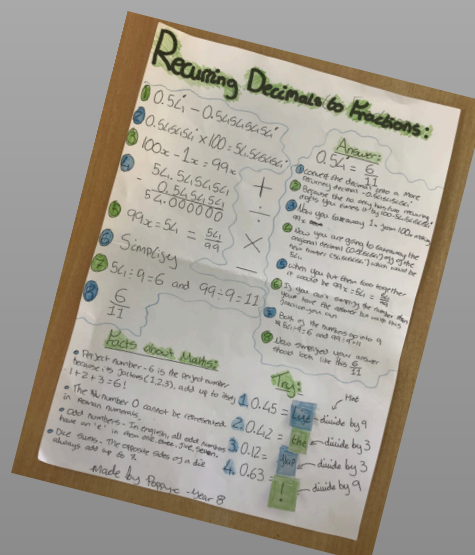 Recurring Decimals to Fractions:
1 0.54 - 0.54545454
2 0.545454 × 100 = 54.545454
3 100x - 1x = 99x
4 54.54545454
- 0.54545454
54.000000
5 99x = 54 = 54/99
6 Simplify
7 54÷9=6 and 99÷9=11
8 6/11
Answer:
0.54 = 6/11
1 Convert the decimal into a more
recurring decimal -
2 Because the no. only has two recurring
digits you times it by 100.
3 Now you takeaway 1x from 100x making
99x
4 Now you are going to takeaway the
original decimal
new number which would be
54.
5 When you put them both together
it would be 99x = 54 = 54/99
6 If you can't simplify the number then
your have the answer but with this
fraction you can
7 Both of the numbers go into 9
54÷9=6 and 99÷9=11
8 Now simplified your answer
should look like this 6/11
+
÷
×
−
Facts about Maths:
Perfect number - 6 is the perfect number
because its factors (1,2,3), add up to itself
1+2+3=6!
The number 0 cannot be represented
in Roman numerals.
Odd numbers - In english, all odd numbers
have an 'e' in them one, three, five, seven.
Dice sums - The opposite sides of a die
always add up to 7.
Made by Poppye - Year 8
Try:
Hint
1. 0.45 = Lift divide by 9
2. 0.42 = the divide by 3
3. 0.12 = flap divide by 3
4. 0.63 = ! divide by 9